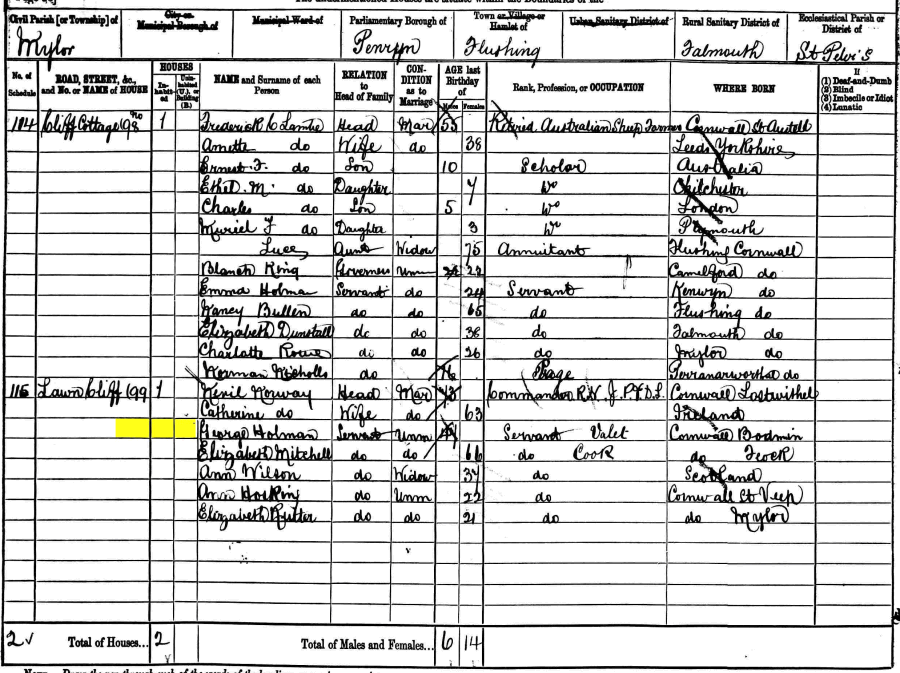 Civil Parish [or Township] of
Mylor
City or
Municipal Borough of
Municipal Ward of
Parliamentary Borough of
Penryn
Town or Village or
Hamlet of
Flushing
Urban Sanitary District of
Rural Sanitary District of
Falmouth
Ecclesiastical Parish or
District of
St Peter's
No. of
Schedule
ROAD, STREET, &c.,
and No. or NAME of HOUSE
HOUSES
In-
habit-
ed
Unin-
habited
(U.), or
Building
(B.)
NAME and Surname of each
Person
RELATION
to
Head of Family
CON-
DITION
as to
Marriage
AGE last
Birthday
of
Males Females
Rank, Profession, or OCCUPATION
WHERE BORN
If
(1) Deaf-and-Dumb
(2) Blind
(3) Imbecile or Idiot
(4) Lunatic
114 Cliff Cottage 98 no 1 Frederick C Head Mar 55 Australian Sheep Farmer Cornwall St Austell
Annette do Wife do 38 Leeds Yorkshire
Ernest F. do Son 10 Scholar Australia
Ethel M. do Daughter 7 Do Chilchester
Charles do Son 5 Do London
Muriel F do Daughter 3 Do Plymouth
Luce Aunt Widow 75 Annuitant Flushing Cornwall
Blanch King Governess Unm 22 Camelford do
Emma Holman Servant do 24 Servant Kenwyn do
Nancy Bullen do do 65 do Flushing do
Elizabeth Dunstall do do 38 do Falmouth do
Charlotte Rowe do do 26 do Mylor do
Norman Nicholls do Page Perranarworthal do
115 Lawn Cliff 99 1 Nevil Norway Head Mar Commander R.N. J.P. & D.L. Cornwall Lostwithiel
Catherine do Wife do 63 Ireland
George Holman Servant Unm Servant Valet Cornwall Bodmin
Elizabeth Mitchell do do 66 do Cook do Feock
Ann Wilson do Widow 37 do Scotland
Ann Hosking do Unm 22 do Cornwall St Veep
Elizabeth Rutter do do 21 do do Mylor
2 Total of Houses... 2 Total of Males and Females... 6 14